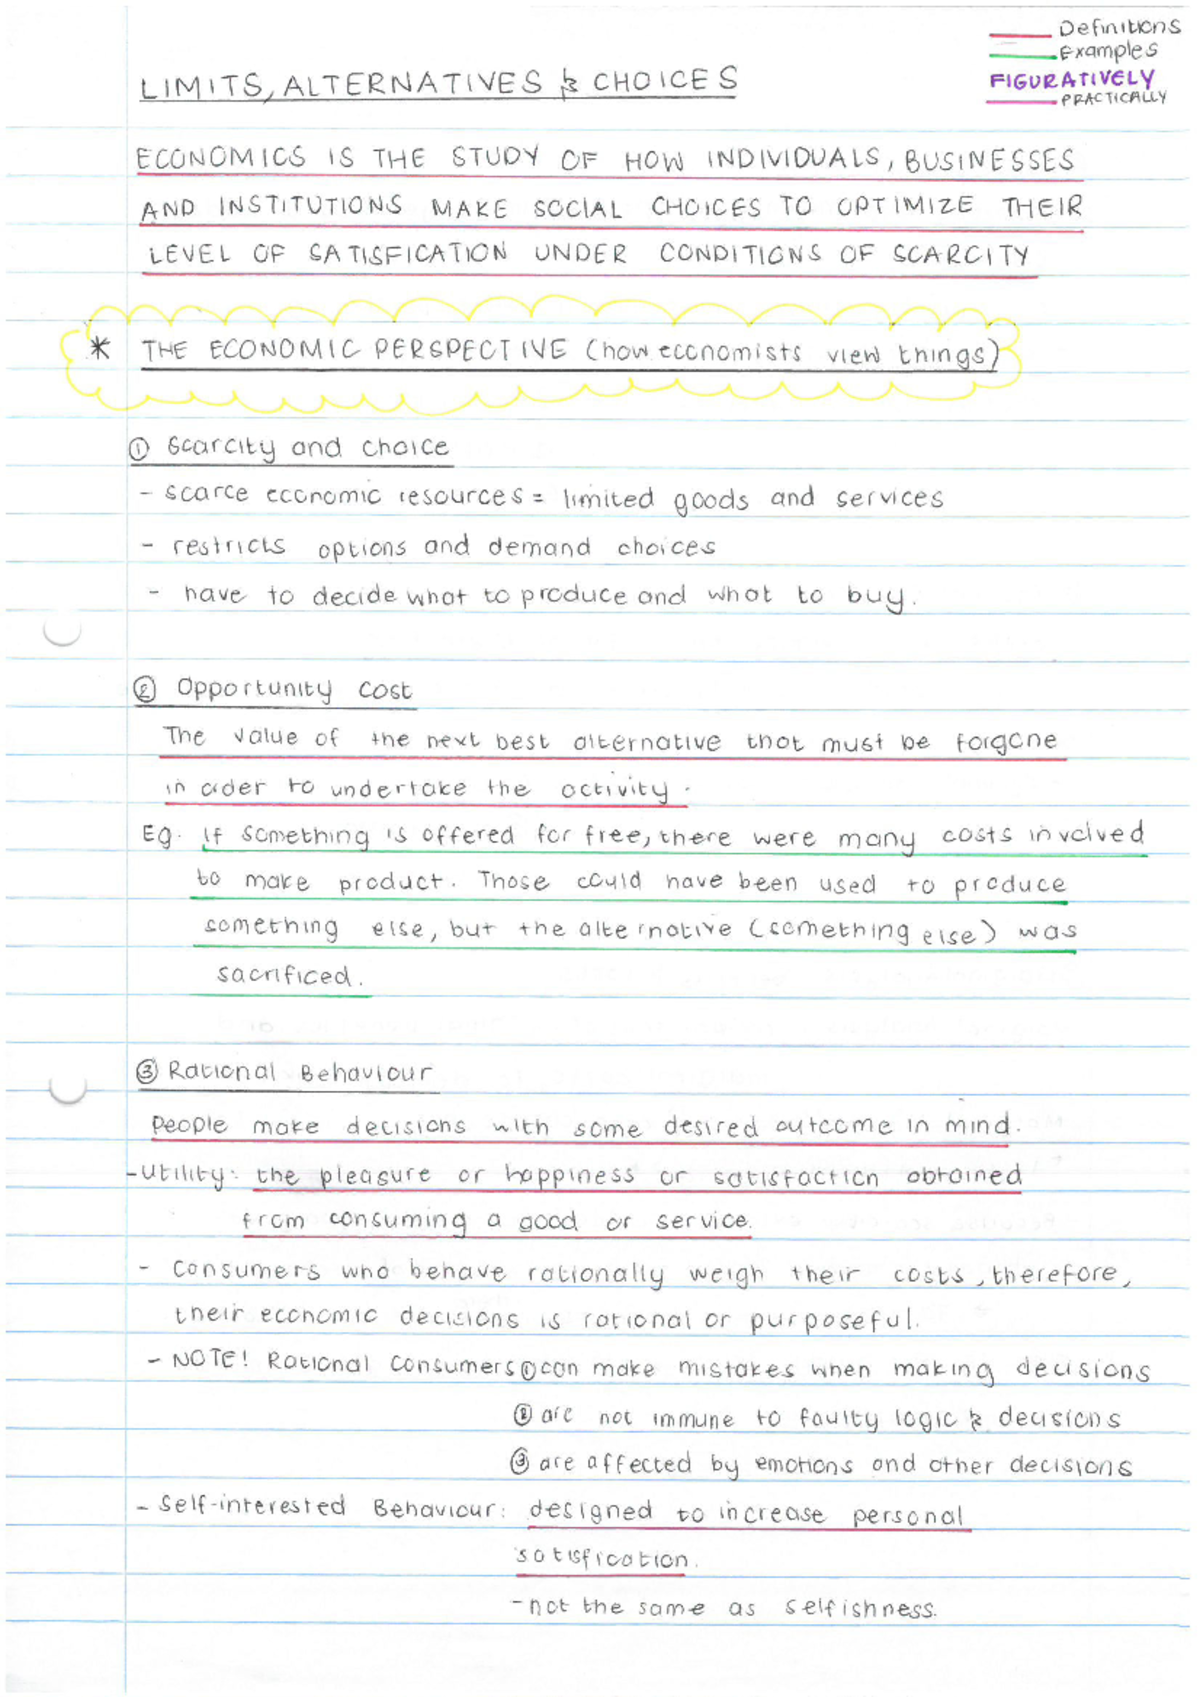 Definitions
Examples
FIGURATIVELY
PRACTICALLY
LIMITS, ALTERNATIVES & CHOICES
ECONOMICS IS THE STUDY OF HOW INDIVIDUALS, BUSINESSES
AND INSTITUTIONS MAKE SOCIAL CHOICES TO OPTIMIZE THEIR
LEVEL OF SATISFICATION UNDER CONDITIONS OF SCARCITY
* THE ECONOMIC PERSPECTIVE (how economists view things)
① Scarcity and choice
- scarce economic resources = limited goods and services
- restricts options and demand choices
- have to decide what to produce and what to buy.
② Opportunity cost
The value of the next best alternative that must be forgone
in oder to undertake the activity.
Eg. If something is offered for free, there were many costs involved
to make product. Those could have been used to produce
something else, but the alternative (something else) was
sacrificed.
③ Rational Behaviour
People make decisions with some desired outcome in mind.
- Utility: the pleasure or happiness or satisfaction obtained
from consuming a good or service.
- Consumers who behave rationally weigh their costs, therefore,
their economic decisions is rational or purposeful.
- NOTE! Rational consumers ① can make mistakes when making decisions
② are not immune to faulty logic & decisions
③ are affected by emotions and other decisions
- Self-interested Behaviour: designed to increase personal
satisfication.
- not the same as selfishness.